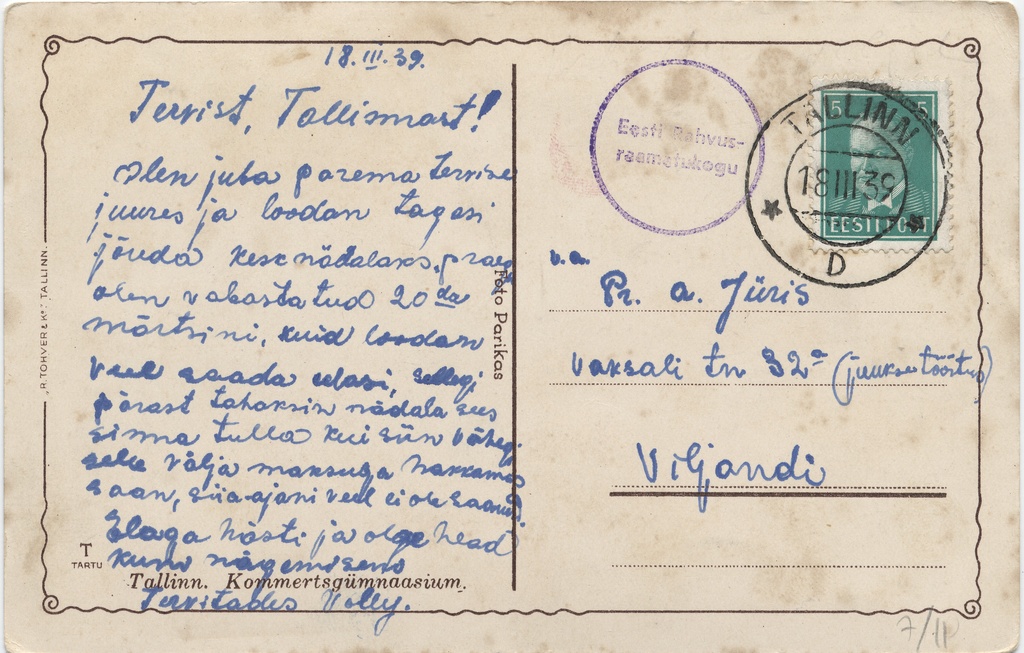 18.III.39.
Tervist, Tallinnast!
Olen juba parema tervise
juures ja loodan tagasi
jõuda kesknädalaks, praeg
olen vabastatud 20da
märtsini, kuid loodan
veel saada edasi, sellegi
pärast tahaksin nädala sees
sinna tulla kui siin vähegi
selle välja maksuga hakkama
saan, siia-ajani veel ei ole saanud.
Elaga hästi ja olge head
kuni nägemiseni
Tervitades Volly.
Tallinn. Kommertsgümnaasium.
T
TARTU
R. TOHVER & Ko. TALLINN.
Foto Parikas
Eesti Rahvus-
raamatukogu
5 5
EESTI POST
TALLINN
18 III 39
D
v.a.
Pr. A. Jüris
Vaksali tn 32a (juuksetööstus)
Viljandi
7/II